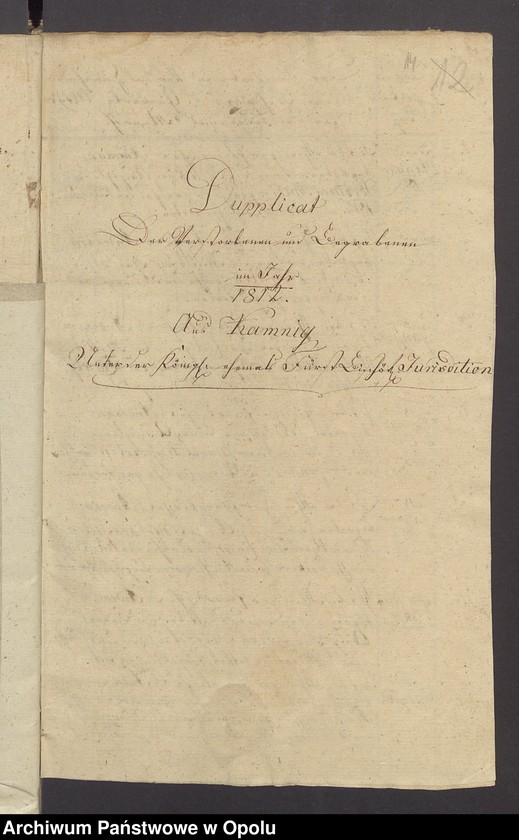 14 12
Dupplicat
Der Verstorbenen und Begrabenen
im Jahr
1812.
Aus Kamnig
Unter der Königl: ehemals Fürst Bischöf. Jurisdition
Archiwum Państwowe w Opolu